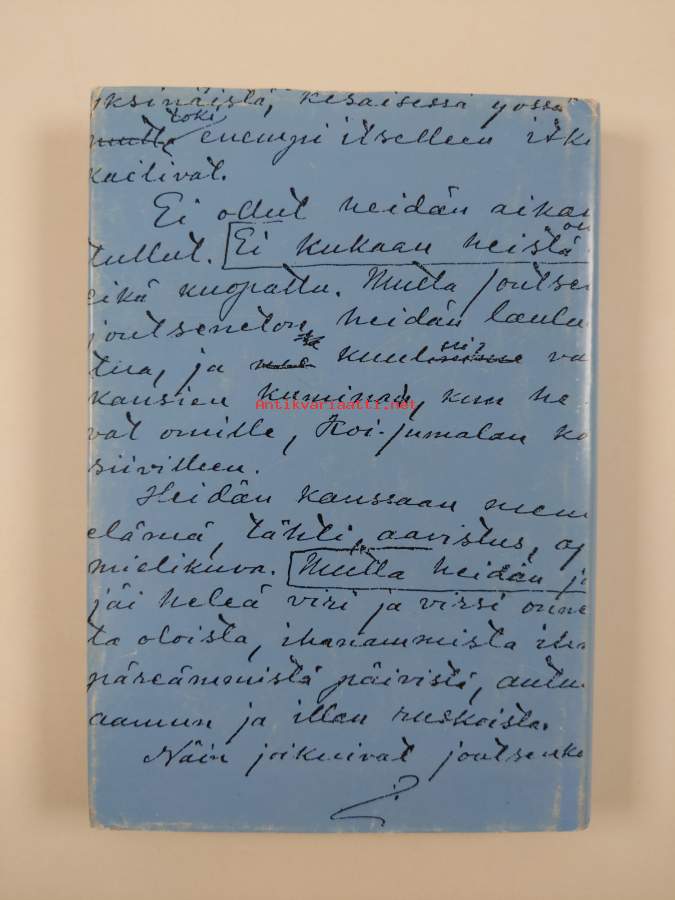 yksinäistä, kesäisessä yössä
toki
mutta enempi itselleen itke
kailivat.
Ei ollut heidän aikan
tullut. Ei kukaan heistä
eikä kuopattu. Mutta joutsen
joutseneton, heidän laulu
tua, ja kuul va
kansien kuminad, kun he
Antikvariaatti.net
vat omille, Koi-jumalan ko
siivilleen.
Heidän kanssaan men
elämä, tähti, aavistus, aj
mielikuva. Mutta heidän j
jäi heleä viri ja virsi onne
ta oloista, ihanammista ih
päreämmistä päivistä, autu
aamun ja illan ruskoista.
Näin joikuivat joutsenke